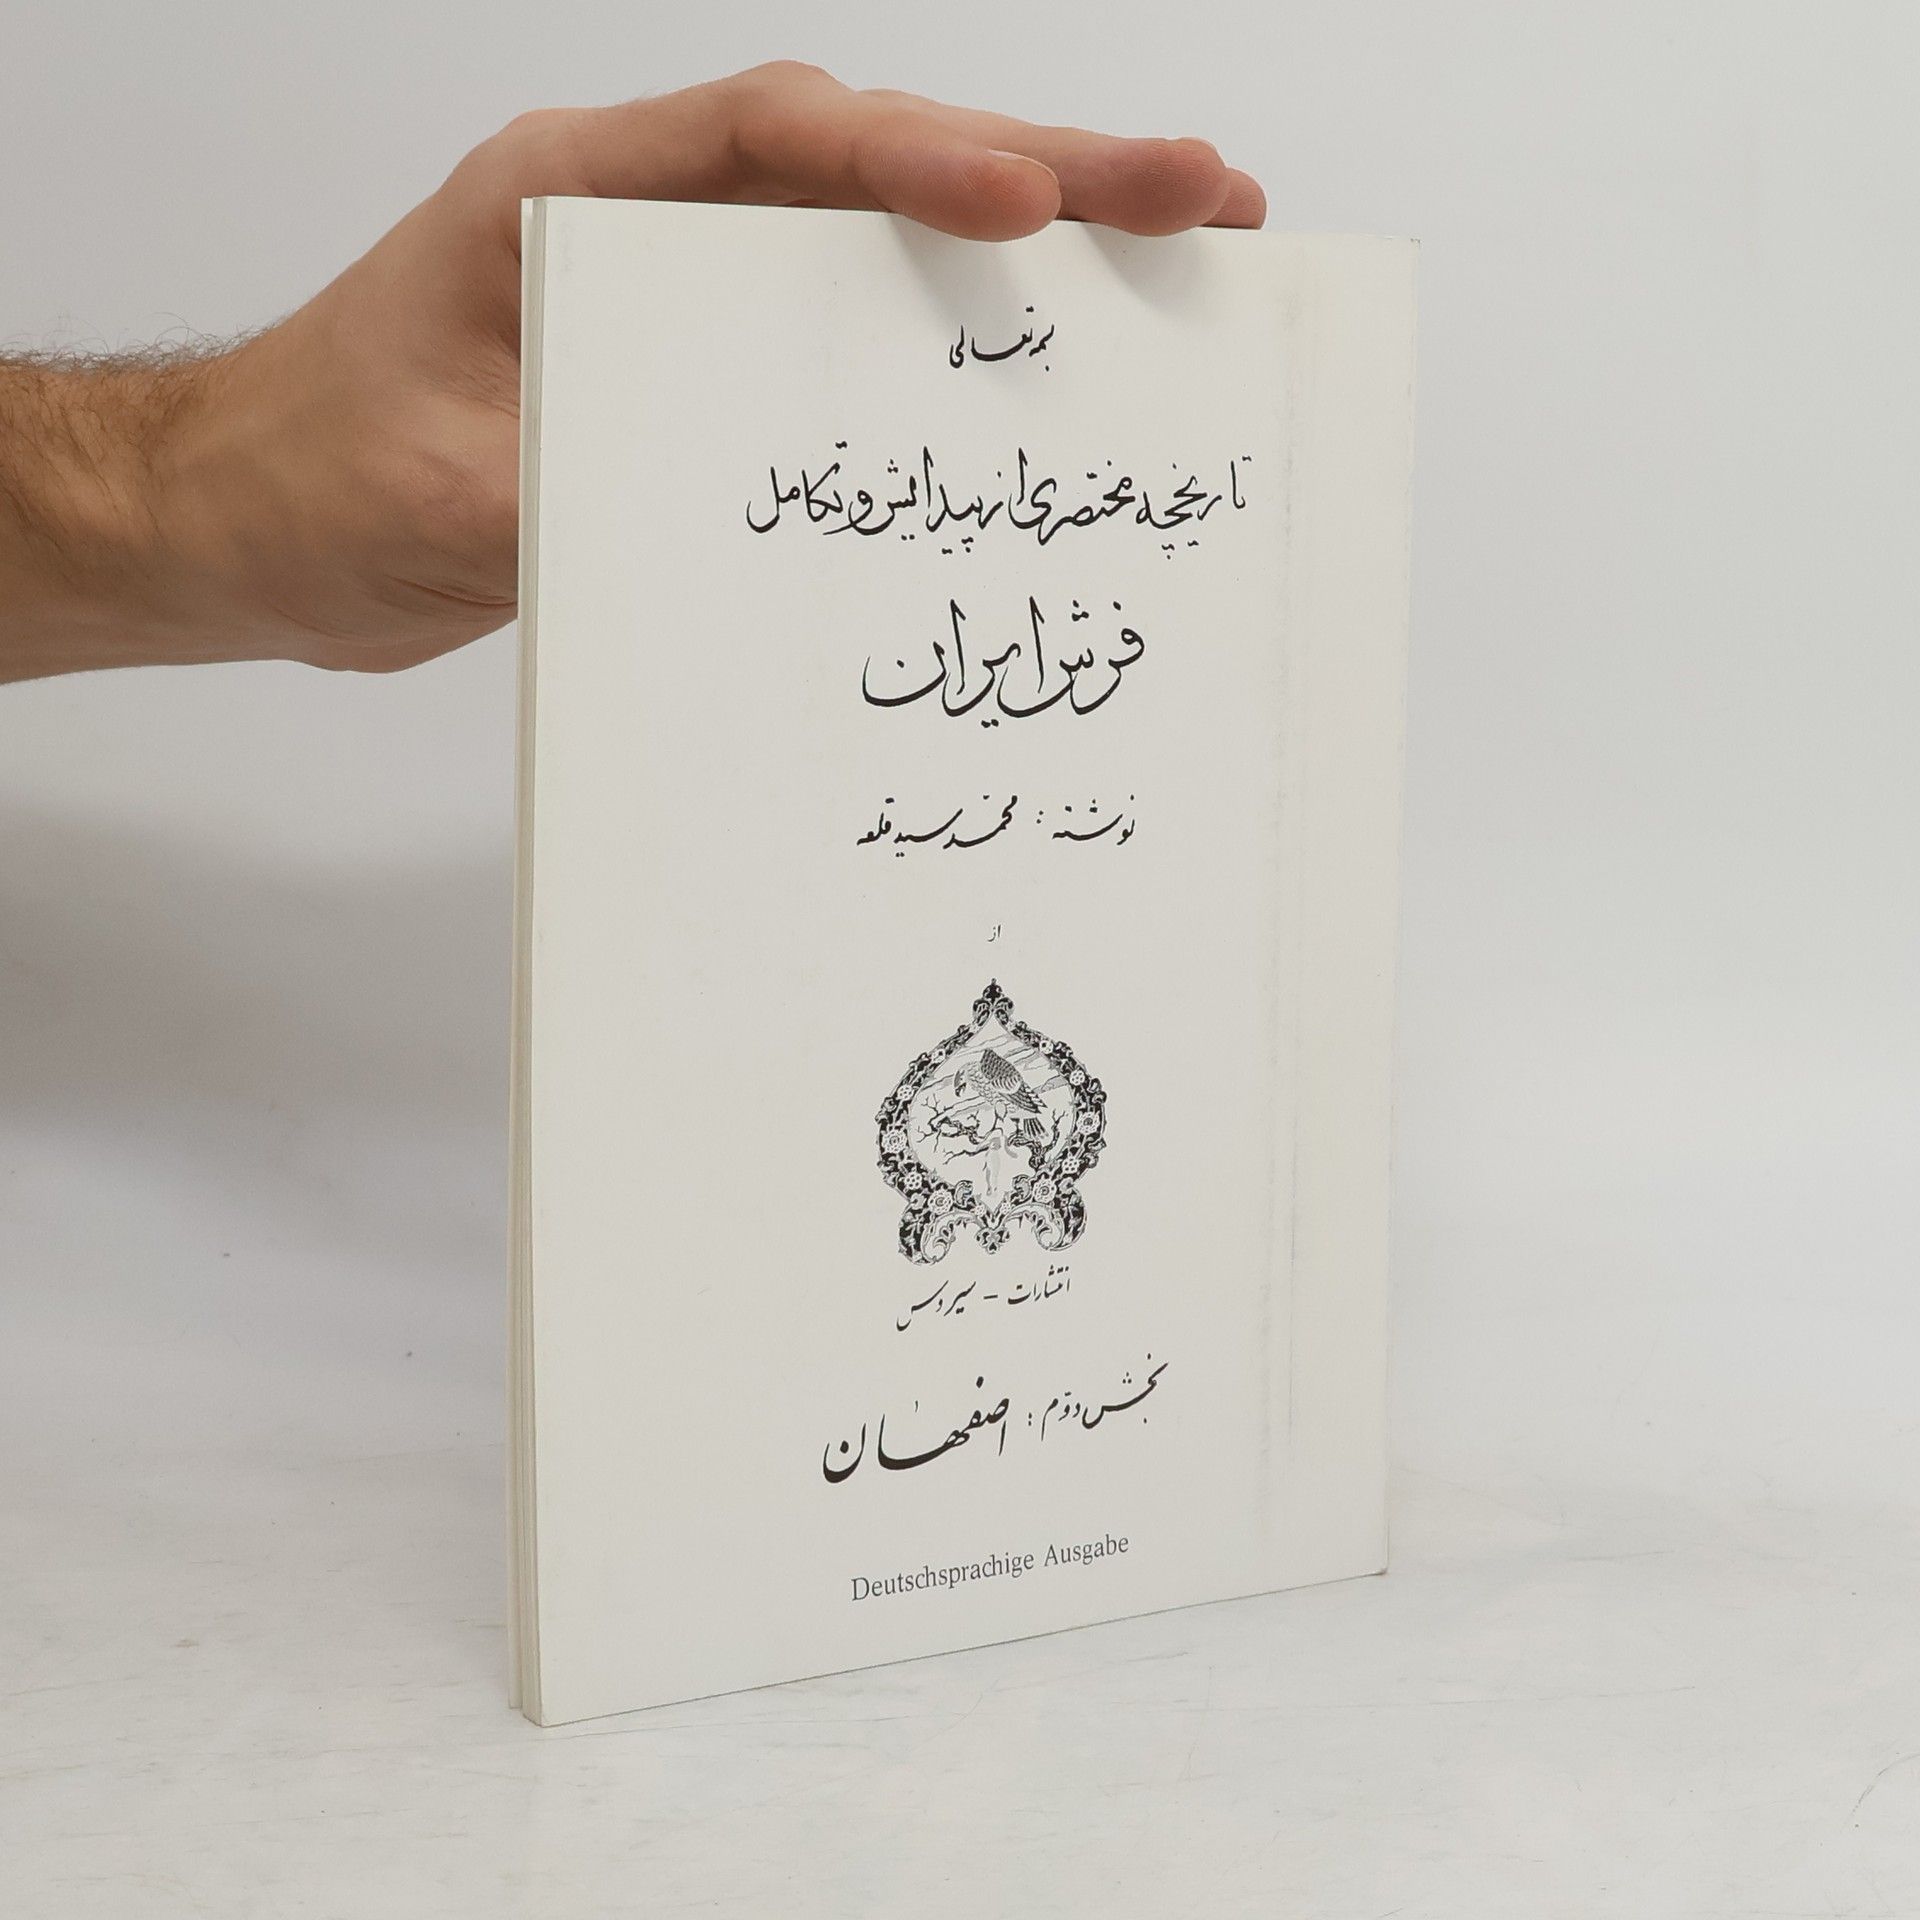 بسمه تعالی
تاریخچه مختصری از پیدایش و تکامل
فرش ایران
نوشته : محمّد سید قلعه
از
انتشارات - سیروس
بخش دوّم : اصفهان
Deutschsprachige Ausgabe